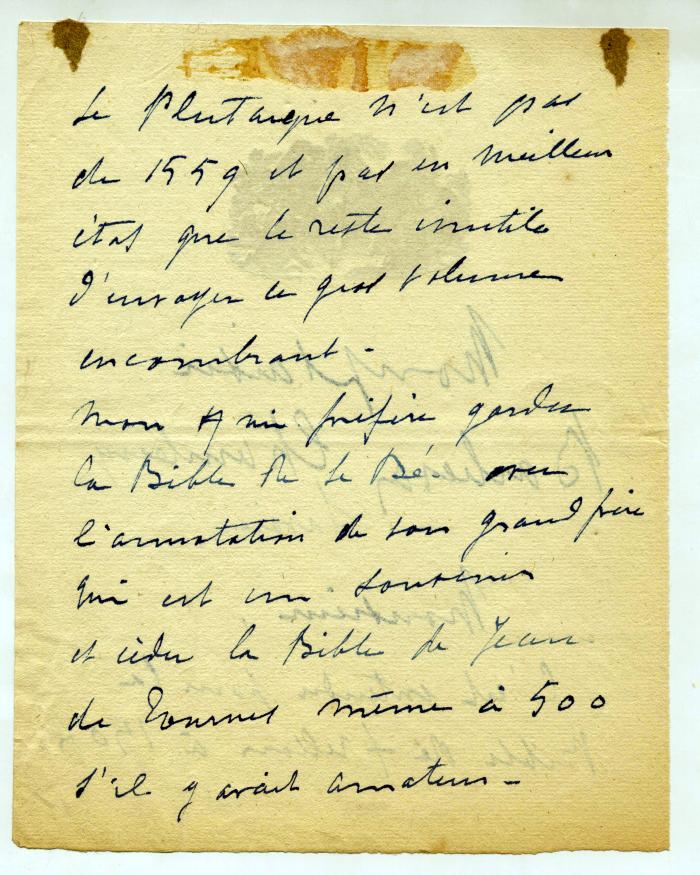 Le Plutarque n'est pas
de 1559 et pas en meilleur
état que le reste inutile
d'envoyer ce gros volume
encombrant -
Mon Ami préfère garder
la Bible de Le Bé avec
l'annotation de son grand père
qui est un souvenir
et céder la Bible de Jean
de Tournes même à 500
s'il y avait amateur -